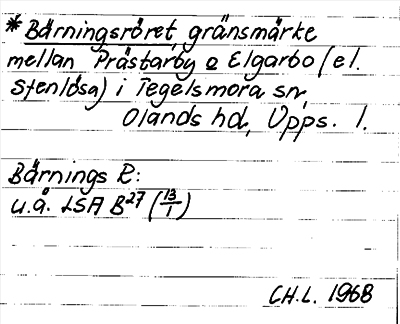 *Bärningsröret, gränsmärke
mellan Prästarby o Elgarbo (el.
Stenlösa) i Tegelsmora sn,
Olands hd, Upps. l.
Bärnings R:
u.å. LSA B27 (13/1)
CH.L. 1968